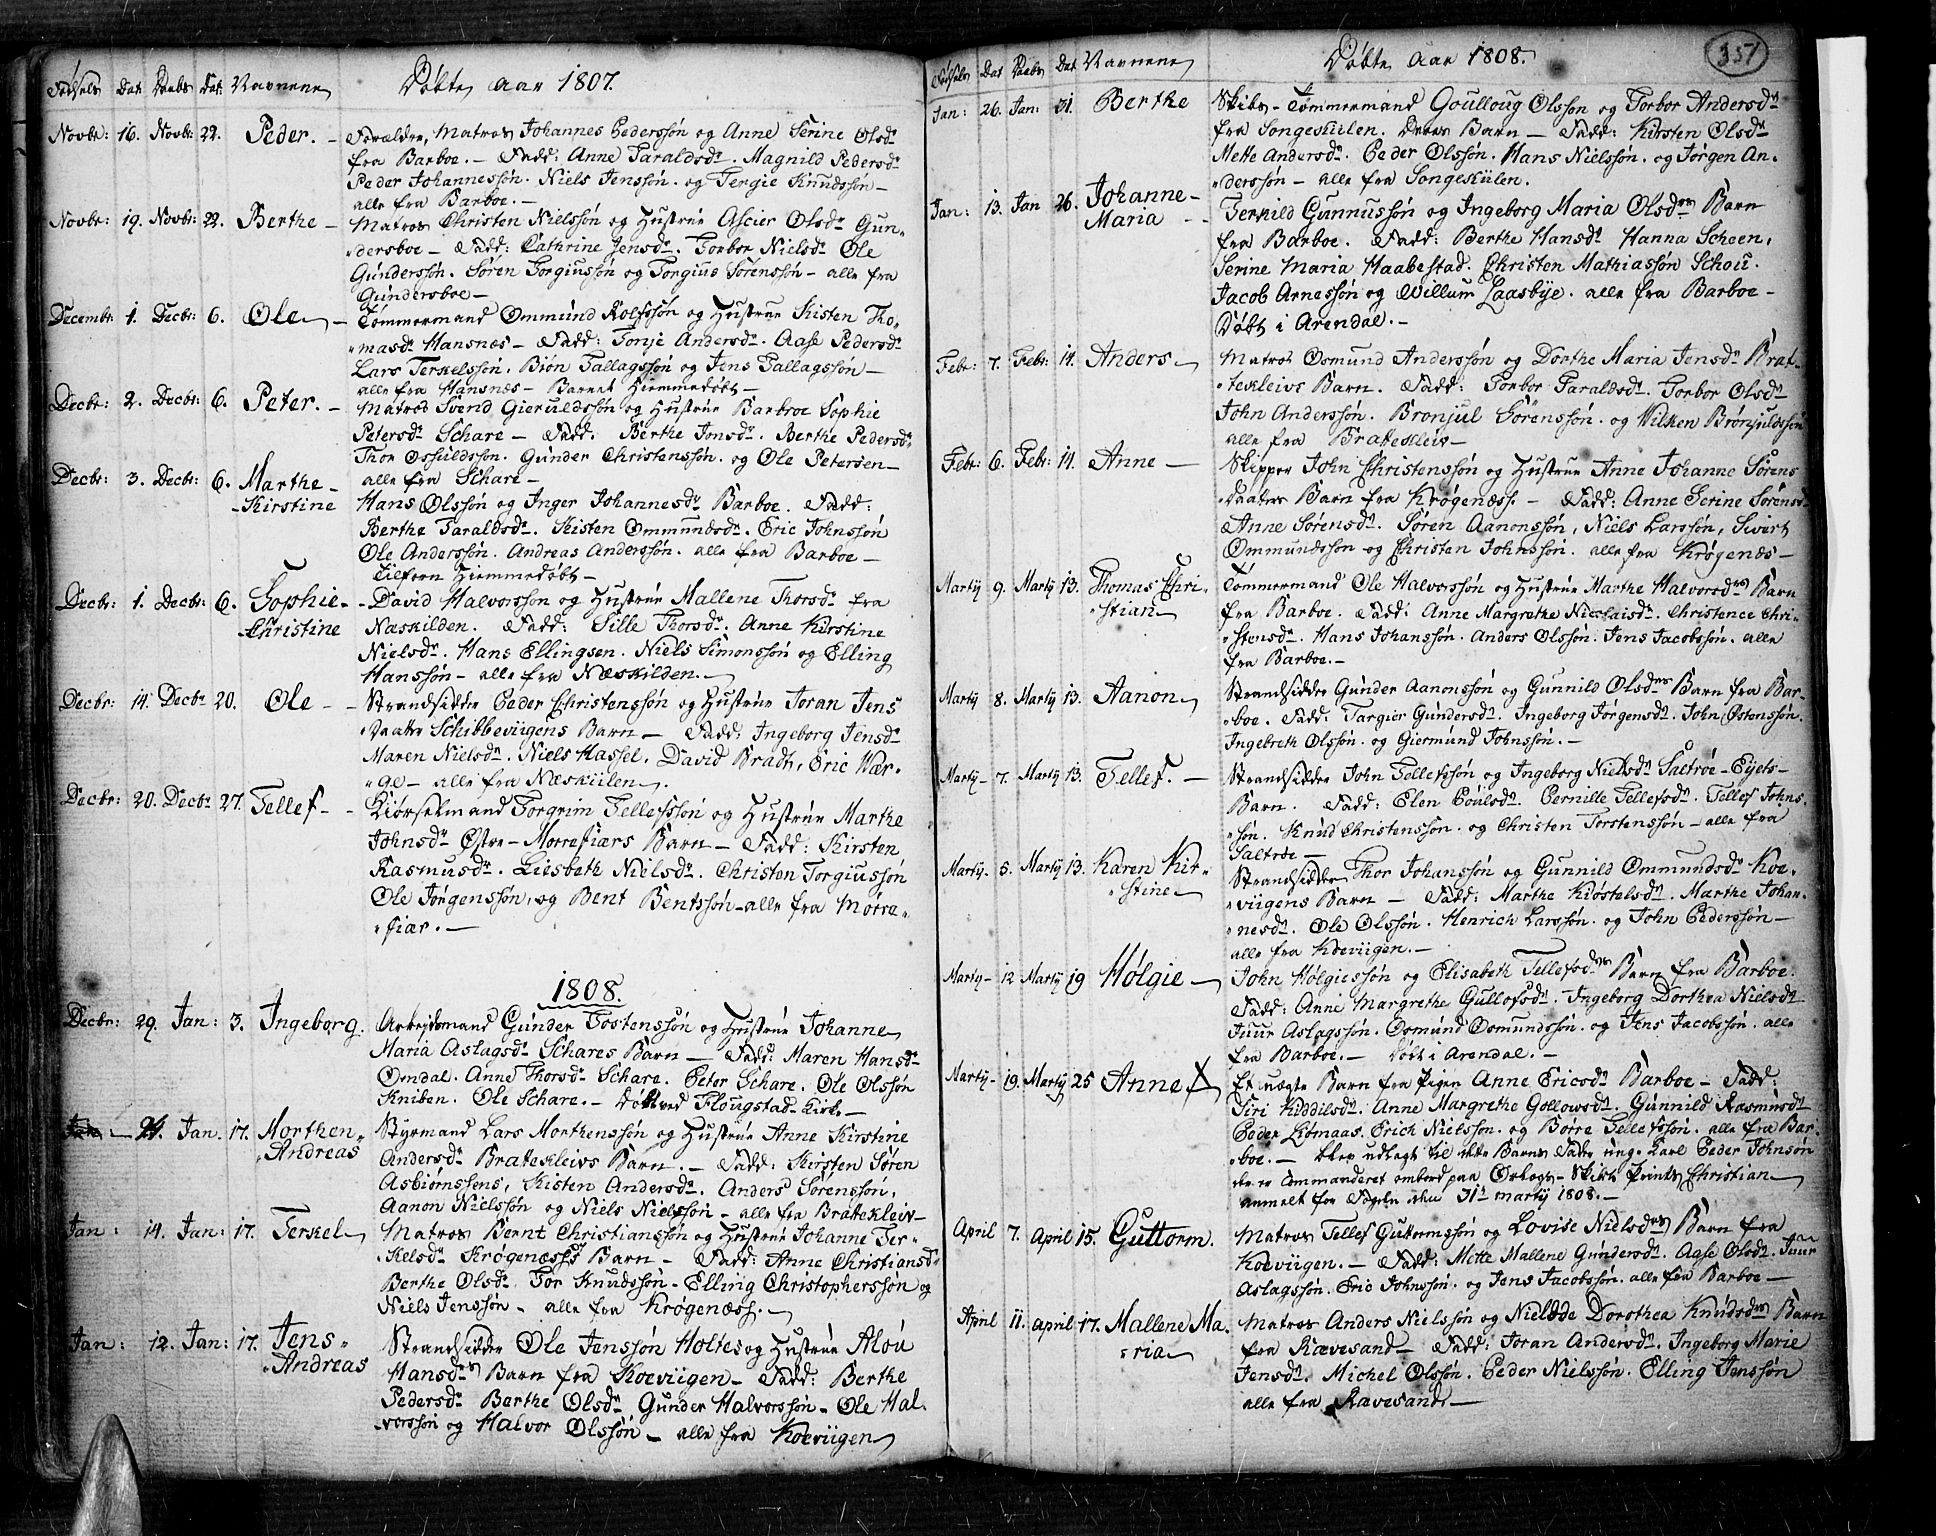 Fødsels Dat: Daabs Dat: Navnene Døbte Aar 1807.
Novbr: 16. Novbr: 22. Peder. – Forældre, Matros Johannes Pederssøn og Anne Serine Olsdr
fra Barboe. – Fadd: Anne Taraldsdr. Magnild Pedersdr
Peder Johannessøn. Niels Jenssøn. og Tergie Knudssøn –
alle fra Barboe. –
Novbr: 19. Novbr: 22. Berthe – Matros Christen Nielssøn og Hustrue Ascier Olsdr Gun„
„dersboe – Fadd: Cathrine Jensdr. Torbor Nielsdr Ole
Gunderssøn. Søren Torgiussøn og Torgius Sørenssøn – alle fra
Gundersboe –
Decembr: 1. Decbr: 6. Ole – Tømmermand Ommund Rolfssøn og Hustrue Kisten Tho„
„masdr Hansnæs – Fadd: Tonje Andersdr. Aase Pedersdr
Lars Terkelssøn. Biøn Tallagssøn og Jens Tallagssøn –
alle fra Hansnæs – Barnet Hiemmedøbt –
Decbr: 2. Decbr: 6. Peter. – Matros Svend Gieruldssøn og Hustrue Barbroe Sophie
Petersdr Schare – Fadd: Berthe Jonsdr. Berthe Pedersdr
Thor Osuldssøn. Gunder Christenssøn. og Ole Petersen –
alle fra Schare –
Decbr: 3. Decbr: 6. Marthe –
– Kirstine Hans Olssøn og Inger Johannesdr Barboe. Fadd:
Berthe Taraldsdr. Kisten Ommundsdr. Eric Johnssøn
Ole Anderssøn. Andreas Anderssøn. alle fra Barboe –
Tilforn Hiemmedøbt –
Decbr: 1. Decbr: 6. Sophie – – David Halvorssøn og Hustrue Mallene Thorsdr fra
– Christine Næskilden. Fadd: Sille Thorsdr. Anne Kirstine
Nielsdr. Hans Ellingsen. Niels Simonssøn og Elling
Hanssøn – alle fra Næskilden. –
Decbr: 14. Decbr 20. Ole – – Strandsidder Peder Christenssøn og Hustrue Joran Jens
„daatter Schibbeviigens Barn – Fadd: Ingeborg Jensdr
Maren Nielsdr. Niels Hassel. David Bradt, Eric Wær„
„ge – alle fra Næskiilen.
Decbr: 20. Decbr 27. Tellef – – Kiørselmand Torgrim Tellefssøn og Hustrue Marthe
Johnsdr Østre – Morrefiærs Barn – Fadd: Kirsten
Rasmusdr. Liesbeth Nielsdr. Christen Torgiussøn
Ole Jørgenssøn, og Bent Bentssøn – alle fra Morre„
„fiær. –
1808.
Decbr: 29. Jan: 3. Ingeborg. Arbejdsmand Gunder Tostenssøn og Hustrue Johanne
Maria Aslagsdr Schares Barn – Fadd: Maren Hansdr
Omdal. Anne Thorsdr Schare. Peter Schare. Ole Olssøn
Kniben. Ole Schare. – Døbt ved Flougstad Kirke –
24. Jan. 17. Morthen„
„Andreas Styrmand Lars Morthenssøn og Hustrue Anne Kirstine
Andersdr Bratekleivs Barn. – Fadd: Kirsten Søren
Asbiørnssens, Kisten Andersdr. Anders Sørenssøn,
Aanon Nielssøn og Niels Nielssøn – alle fra Bratekleiv –
Jan: 14. Jan: 17. Terkel Matros Bernt Christianssøn og Hustrue Johanne Ter„
„kelsdr Krøgenæss Barn – Fadd: Anne Christiansdr
Berthe Olsdr. Tor Knudssøn. Elling Christopherssøn og
Niels Jenssøn – alle fra Krøgenæss. –
Jan: 12. Jan: 17. Jens„
„Andreas Strandsidder Ole Jenssøn Holtes og Hustrue Alou
Hansdrs Barn fra Koeviigen – Fadd: Berthe
Pedersdr Berthe Olsdr Gunder Halvorssøn – Ole Hal„
„vorssøn og Halvor Olssøn – alle fra Koeviigen
Fødsels Dat Daabs Dat Navnene Døbte Aar 1808. 351
Jan: 26. Jan: 31. Berthe Skibs – Tømmermand Goulloug Olssøn og Torbor Andersdr
fra Songekiilen. Deres Barn – Fadd: Kirsten Olsdr
Mette Andersdr. Peder Olssøn. Hans Nielssøn. og Jørgen An„
„derssøn – alle fra Songekiilen.
Jan: 13. Jan 26. Johanne –
Maria – – Terkild Gunnussøn og Ingeborg Maria Olsdrs Barn
fra Barboe. Fadd: Berthe Hansdr Hanna Scheen,
Serine Maria Haabestad. Christen Mathiassøn Schou.
Jacob Arnessøn og Willum Laasbye. alle fra Barboe –
Døbt i Arendal. –
Febr: 7. Febr: 14. Anders Matros Osmund Anderssøn og Dorthe Maria Jensdr Brat„
„tekleivs Barn. Fadd: Torbor Taraldsdr. Torbor Olsdr
John Anderssøn. Bronjul Sørenssøn. og Wilken Brønjuldssøn
alle fra Brattekleiv –
Febr: 6. Febr: 14. Anne – Skipper John Christenssøn og Hustrue Anne Johanne Sørens
„daatters Barn fra Krøgenæss. – Fadd: Anne Serine Sørensdr
Anne Sørensdr. Søren Aanonssøn, Niels Larssøn, Sivert
Ommundssøn og Christen Johnssøn. alle fra Krøgenæs –
Martij 9. Martij 13. Thomas Chri„
„stian Tømmermand Ole Halvorssøn og Hustrue Marthe Halvorsdrs Barn
fra Barboe. Fadd: Anne Margrethe Nicolaisdr. Christence Chri„
„stensdr. Hans Johanssøn. Anders Olssøn. Jens Jacobssøn. alle
fra Barboe. –
Martij 8. Martij 13. Aanon Strandsidder Gunder Aanonssøn og Gunnild Olsdrs Barn fra Bar„
„boe. Fadd: Targier Gundersdr. Ingeborg Jørgensdr. John Østenssøn.
Ingebreth Olssøn. og Giermund Johnssøn. –
Martij – 7. Martij 13. Tellef. – Strandsidder John Tellefssøn og Ingeborg Nielsdr Saltrøe – Ejets
Barn. Fadd: Elen Poulsdr. Pernille Tellefsdr. Tellef Johns„
„søn. Knud Christenssøn. og Christen Torstenssøn – alle fra
Saltrøe –
Martij – 5. Martij 13. Karen Kir„
„stine Strandsidder Thor Johanssøn og Gunnild Ommundsdr Koe„
„viigens Barn – Fadd: Marthe Kiøstelsdr. Marthe Johan„
„nesdr. Ole Olssøn. Henrich Larssøn. og John Pederssøn –
alle fra Koeviigen. –
Martij – 12 Martij 19 Hølgie – John Hølgiessøn og Elisabeth Tellefsdrs Barn fra Barboe.
Fadd: Anne Margrethe Gullofsdr. Ingeborg Dorthea Nielsdr
Juur Aslagssøn. Osmund Osmundssøn. og Jens Jacobssøn. alle
fra Barboe. – Døbt i Arendal. –
Martij – 19. Martij 25 Anne Et uægte Barn fra Pigen Anne Ericsdr Barboe – Fadd:
Siri Kiddilsdr. Anne Margrethe Gollowsdr. Gunnild Rasmusdr
Peder Libmaas. Erich Nielssøn. og Børre Tellefssøn. alle fra Bar„
„boe. – blev udlagt til dette Barns Fader unge Karl Peder Johnsøn
der er Commanderet ombord paa Orlogs – Skibet Printz Christian
anmelt for Fogden den 31te martij 1808. –
April 7. April 15. Guttorm. Matros Tellef Guttormssøn og Lovise Nielsdrs Barn fra
Koeviigen. – Fadd: Mette Mallene Gundersdr. Aase Olsdr. Juur
Aslagssøn. Eric Johnssøn. og Jens Jacobssøn. alle fra Barboe –
April 11. April 17. Mallene Ma„
„ria Matros Anders Nielssøn og Nielsde Dorothea Knudsdrs Barn
fra Rævesand – Fadd: Joran Andersdr. Ingeborg Marie
Jensdr. Michel Olssøn. Peder Nielssøn. Elling Jenssøn
alle fra Ravesand. –